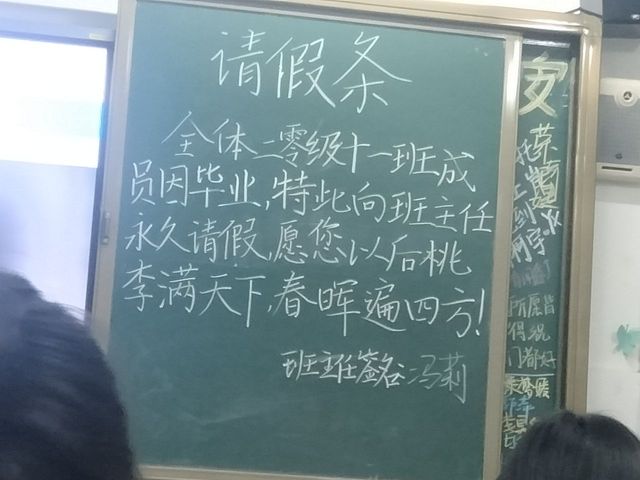 请假条
全体二零级十一班成
员因毕业,特此向班主任
永久请假,愿您以后桃
李满天下,春晖遍四方!
班主任签名:冯莉
所愿皆
得祝
门都好